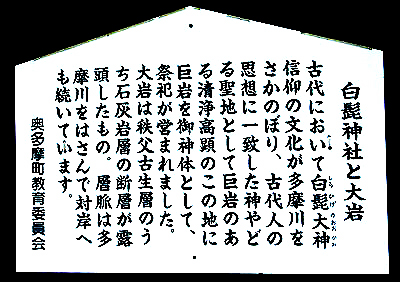 白髭神社と大岩
古代において白髭大神
信仰の文化が多摩川を
さかのぼり、古代人の
思想に一致した神やど
る聖地として巨岩のあ
る清浄高顕のこの地に
巨岩を御神体として、
祭祀が営まれました。
大岩は秩父古生層のう
ち石灰岩層の断層が露
頭したもの。層脈は多
摩川をはさんで対岸へ
も続いています。
奥多摩町教育委員会